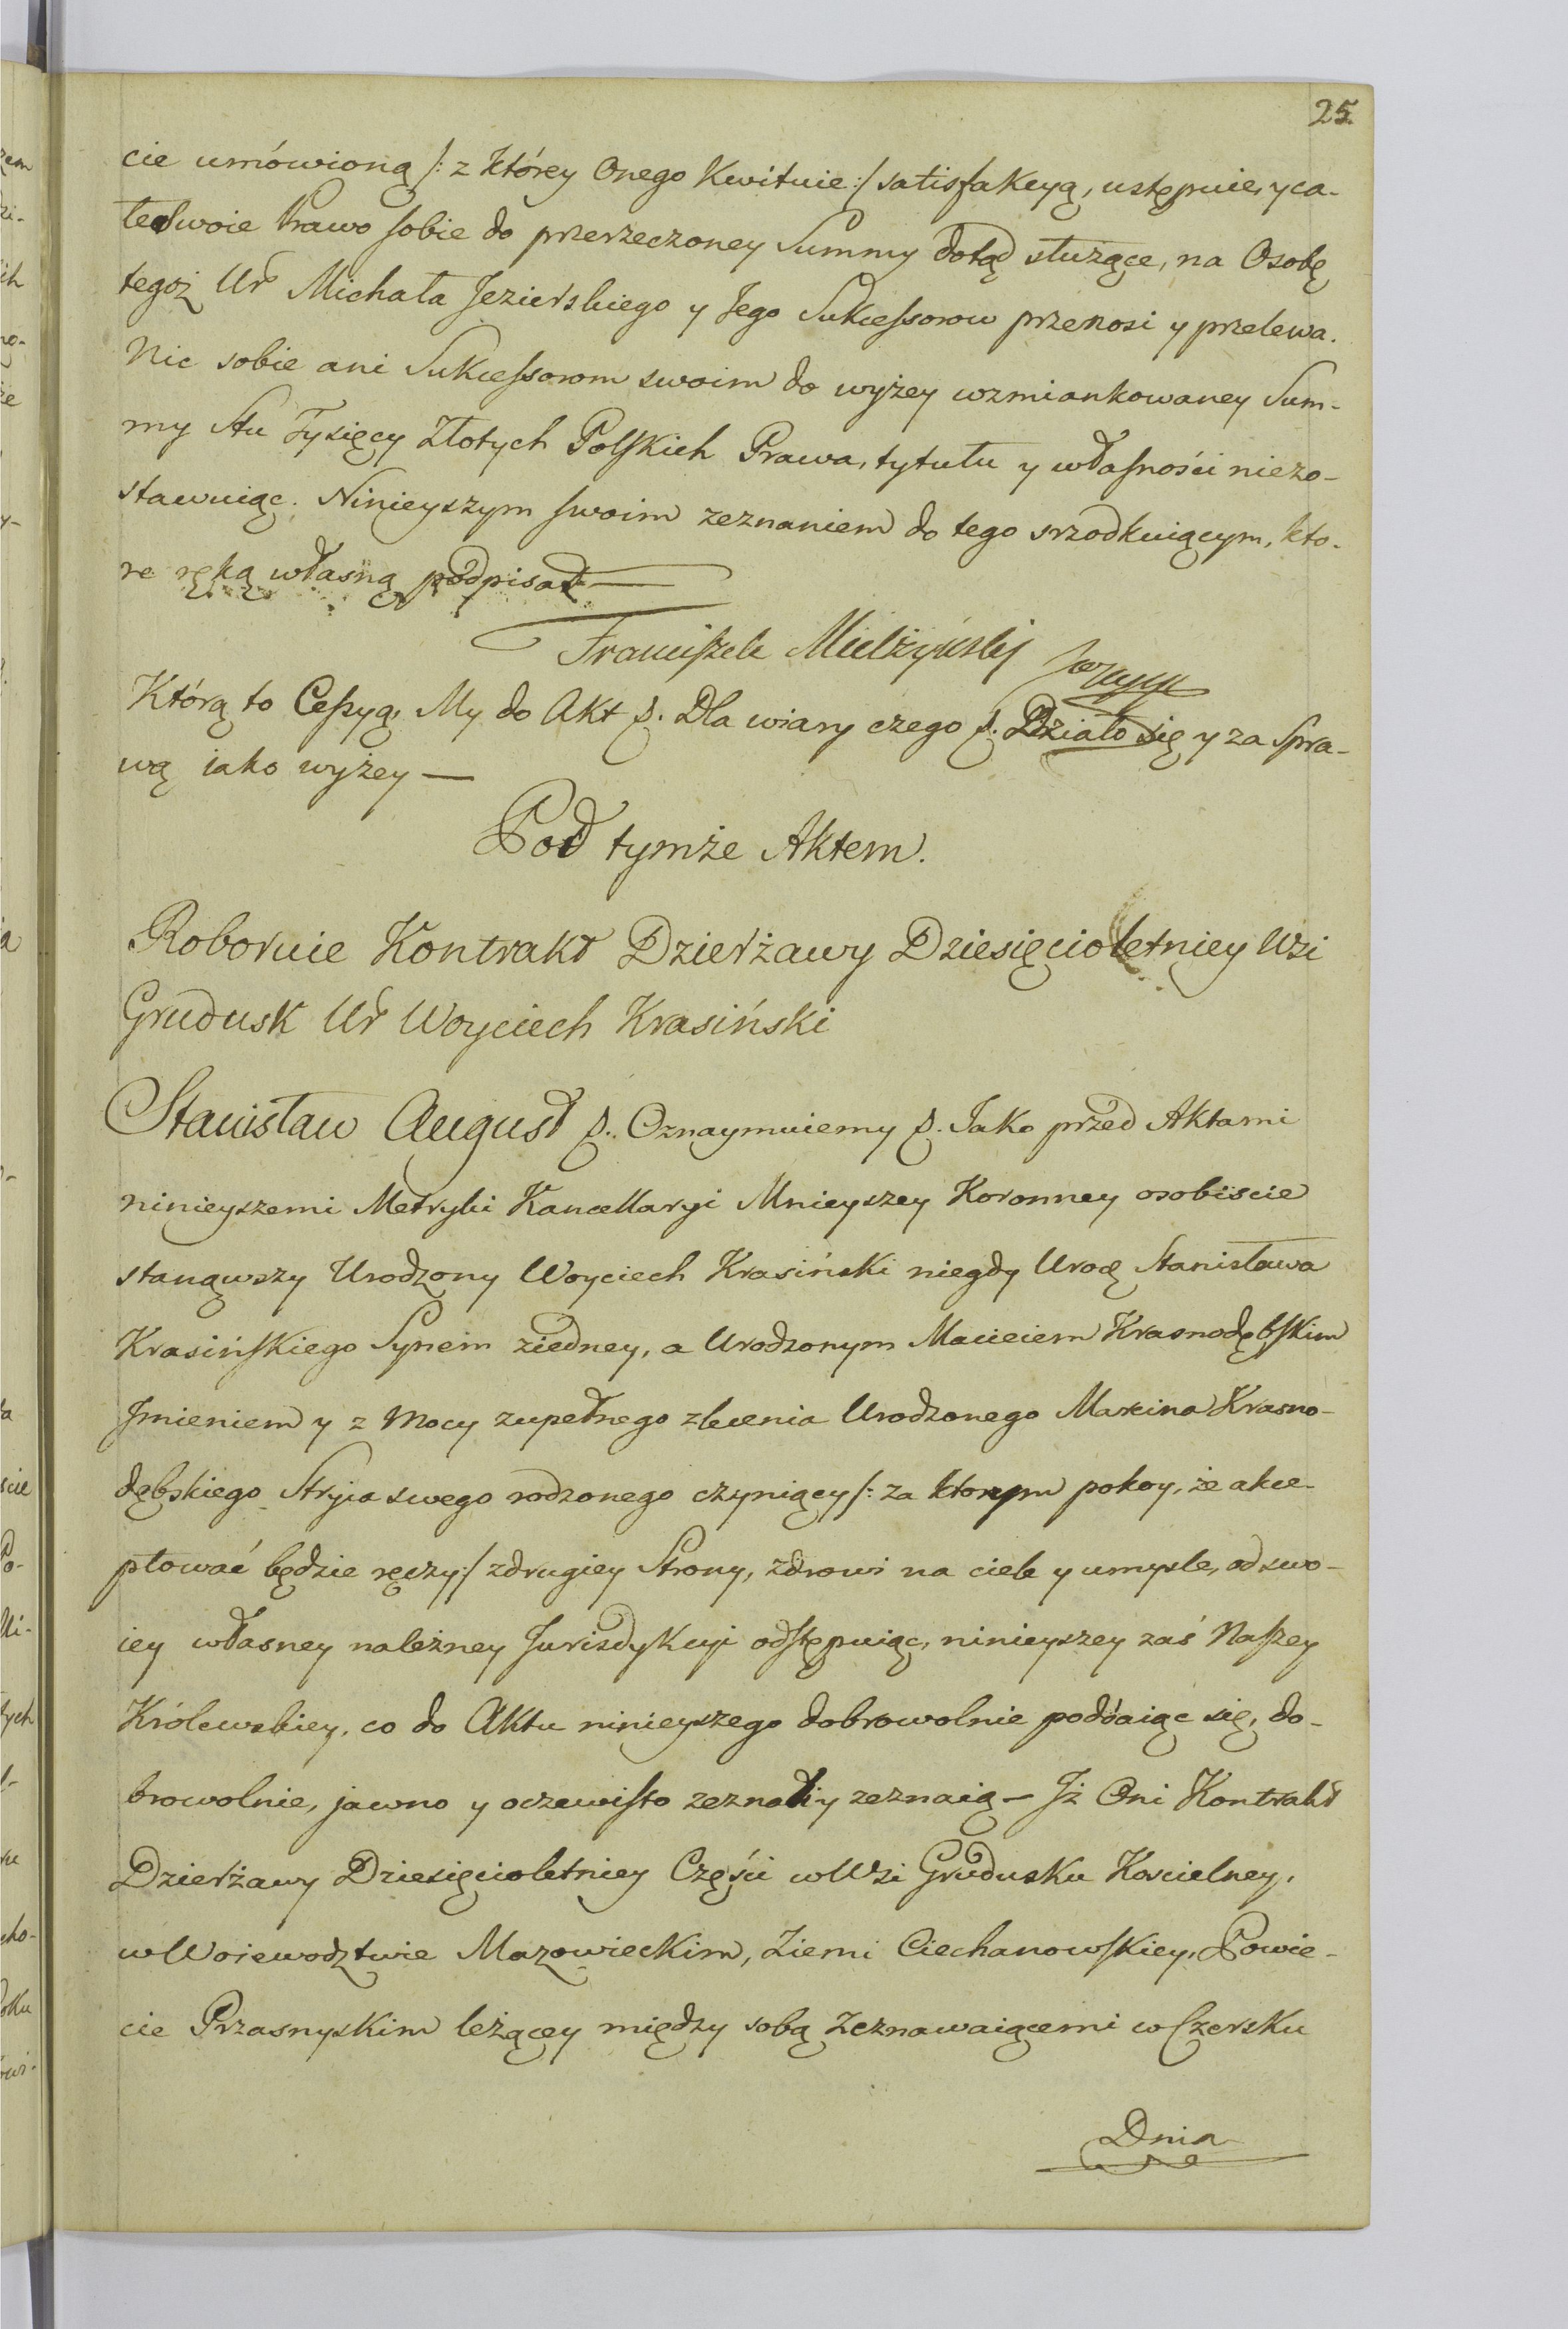 25
cie umówioną /: z którey Onego kwituie :/ satisfakcyą, ustępuie, y ca-
łe Swoie Prawo sobie do przerzeczoney Summy dotąd służące, na Osobę
tegoż Ur Michała Jezierskiego y Jego Sukcessorow przenosi y przelewa.
Nic sobie ani Sukcessorom swoim do wyżey wzmiankowaney Sum-
my Stu Tysięcy Złotych Polskich Prawa, tytułu y własności niezo-
stawuiąc. Ninieyszym swoim zeznaniem do tego srzodkuiącym, kto-
re ręką własną podpisał —
Franciszek Mielżyński
Którą to Cessyą, My do Akt p. Dla wiary czego p. Działo się y za Spra-
wą iako wyżey —
Pod tymże Aktem.
Roboruie Kontrakt Dzierżawy Dziesięcioletniey Wsi
Grudusk Ur Woyciech Krasiński
Stanisław August p. Oznaymuiemy p. Iako przed Aktami
ninieyszemi Metryki Kancellaryi Mnieyszey Koronney osobiscie
stanąwszy Urodzony Woyciech Krasiński niegdy Urodz Stanisława
Krasińskiego Synem ziedney, a Urodzonym Maciciem Krasnodębskim
Jmieniem y z Mocy zupełnego zlecenia Urodzonego Marcina Krasno-
dębskiego Stryia swego rodzonego czyniący /: za ktorym pokoy, że akce-
ptować będzie ręczy :/ zdrugiey Strony, zdrowi na ciele y umysle, od swo-
iey własney należney Jurisdykcyi odstępuiąc, ninieyszey zaś Naszey
Królewskiey, co do Aktu ninieyszego dobrowolnie poddaiąc się, do-
browolnie, jawno y oczewisto zeznali y zeznaią — Jż Oni Kontrakt
Dzierżawy Dziesięcioletniey Części w Wsi Grudusku Koscielney,
w Woiewodztwie Mazowieckim, Ziemi Ciechanowskiey, Powie-
cie Przasnyskim leżącey między sobą Zeznawaiącemi w Czersku
Dnia